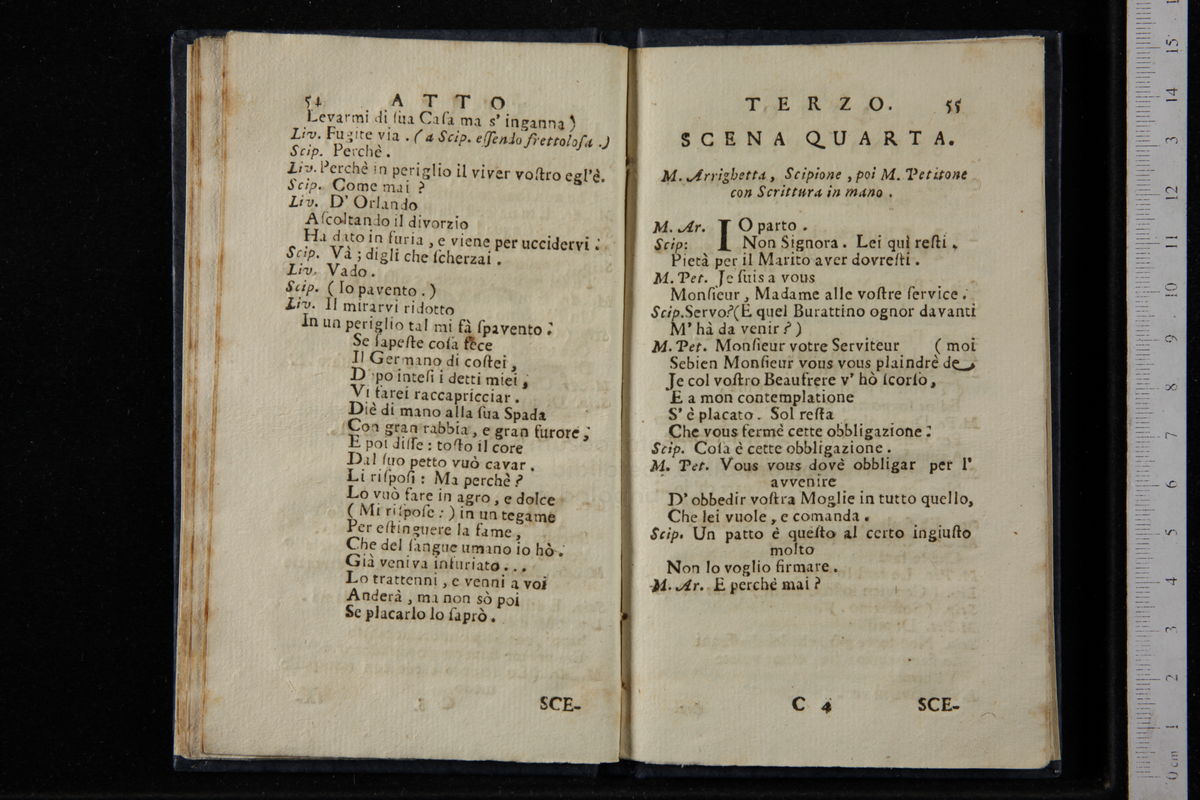 54 ATTO
Levarmi di ſua Caſa ma s' inganna)
Liv. Fugite via . (a Scip. eſſendo frettoloſa .)
Scip. Perchè .
Liv. Perchè in periglio il viver voſtro egl'è.
Scip. Come mai ?
Liv. D' Orlando
Aſcoltando il divorzio
Ha dato in furia , e viene per uccidervi .
Scip. Và ; digli che ſcherzai .
Liv. Vado .
Scip. ( Io pavento . )
Liv. Il mirarvi ridotto
In un periglio tal mi fà ſpavento .
Se ſapeſte coſa fece
Il Germano di coſtei ,
D po inteſi i detti miei ,
Vi farei raccapricciar .
Diè di mano alla ſua Spada
Con gran rabbia , e gran furore ,
E poi diſſe : toſto il core
Dal ſuo petto vuò cavar .
Li riſpoſi : Ma perchè ?
Lo vuò fare in agro , e dolce
( Mi riſpoſe : ) in un tegame
Per eſtinguere la fame ,
Che del ſangue umano io hò .
Già veniva infuriato . . .
Lo trattenni , e venni a voi
Anderà , ma non sò poi
Se placarlo lo ſaprò .
SCE-
TERZO. 55
SCENA QUARTA.
M. Arrighetta , Scipione , poi M. Petitone
con Scrittura in mano .
M. Ar. IO parto .
Scip: Non Signora . Lei quì reſti .
Pietà per il Marito aver dovreſti .
M. Pet. Je ſuis a vous
Monſieur , Madame alle voſtre ſervice .
Scip. Servo? (E quel Burattino ognor davanti
M' hà da venir ? )
M. Pet. Monſieur votre Serviteur ( moi
Sebien Monſieur vous vous plaindrè de
Je col voſtro Beaufrere v' hò ſcorſo ,
E a mon contemplatione
S' è placato . Sol reſta
Che vous fermè cette obbligazione .
Scip. Coſa è cette obbligazione .
M. Pet. Vous vous dovè obbligar per l'
avvenire
D' obbedir voſtra Moglie in tutto quello,
Che lei vuole , e comanda .
Scip. Un patto è queſto al certo ingiuſto
molto
Non lo voglio firmare .
M. Ar. E perchè mai ?
C 4 SCE-
0 cm 1 2 3 4 5 6 7 8 9 10 11 12 13 14 15